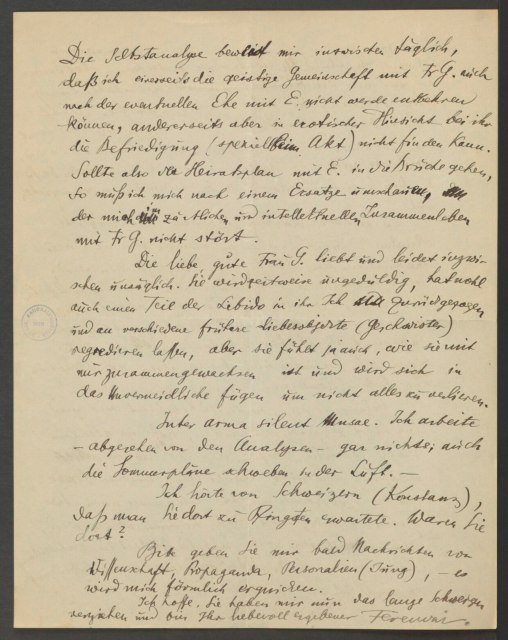 Die Selbstanalyse beweist mir inzwischen täglich,
daß ich einerseits die geistige Gemeinschaft mit Fr G. auch
nach der eventuellen Ehe mit E. nicht werde entbehren
können, andererseits aber in erotischer Hinsicht bei ihr
die Befriedigung (speziell beim Akt) nicht finden kann.
Sollte also der Heiratsplan mit E. in die Brüche gehen,
so muß ich mich nach einem Ersatze umschauen,
der mich im zärtlichen und intellektuellen Zusammenleben
mit Fr G. nicht stört.
Die liebe, gute Frau G. liebt und leidet inzwi-
schen unsäglich. Sie wird zeitweise ungeduldig, hat wohl
auch einen Teil der Libido in ihr Ich zurückgezogen
und an verschiedene frühere Liebesobjekte (Geschwister)
regredieren lassen, aber sie fühlt ja auch, wie sie mit
mir zusammengewachsen ist und wird sich in
das Unvermeidliche fügen um nicht alles zu verlieren.
Inter arma silent Musae. Ich arbeite
– abgesehen von den Analysen – gar nichts; auch
die Sommerpläne schweben in der Luft. –
Ich hörte von Schweizern (Konstanz),
daß man Sie dort zu Pfingsten erwartete. Waren Sie
dort?
Bitte geben Sie mir bald Nachrichten von
Wissenschaft, Propaganda, Personalien (Jung), – es
wird mich förmlich erquicken.
Ich hoffe, Sie haben mir nun das lange Schweigen
verziehen und bin Ihr liebevoll ergebener Ferenczi.